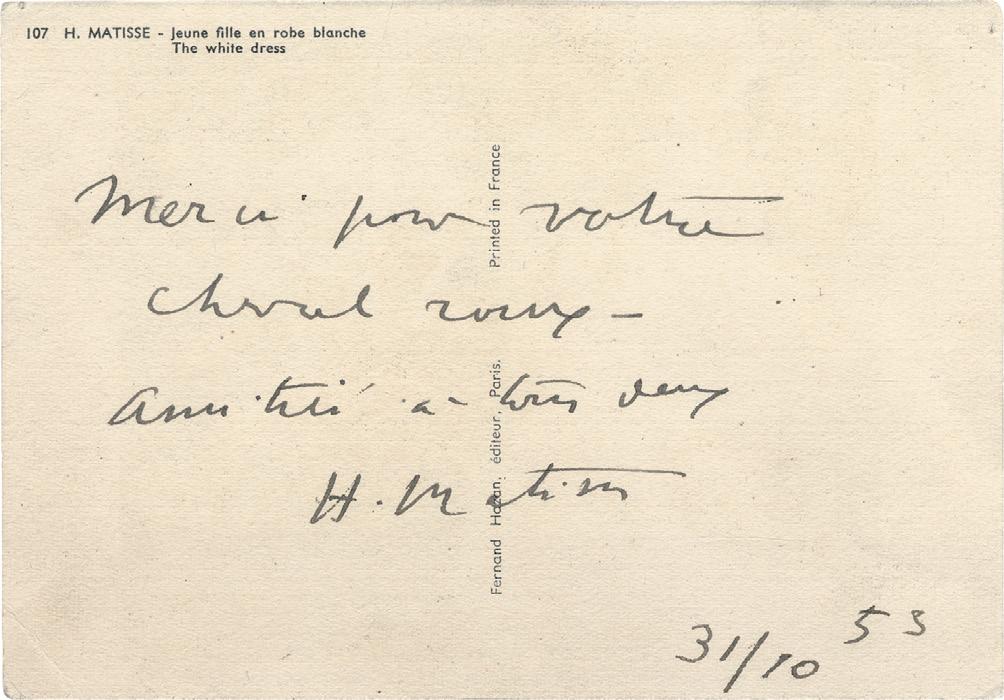 107 H. MATISSE - Jeune fille en robe blanche
The white dress
Merci pour votre
cheval roux -
Amitié à tous deux
H. Matisse
31/10 53
Printed in France
Fernand Hazan, éditeur, Paris.